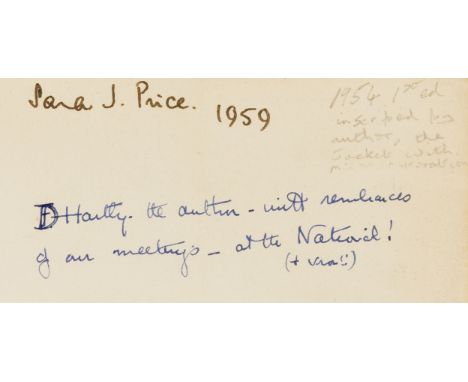 Sara J. Price. 1959
1954 1st ed
inscribed by
author, the
Jacket with
DHartly - the author - with rembrances
of our meetings - at the National!
(+